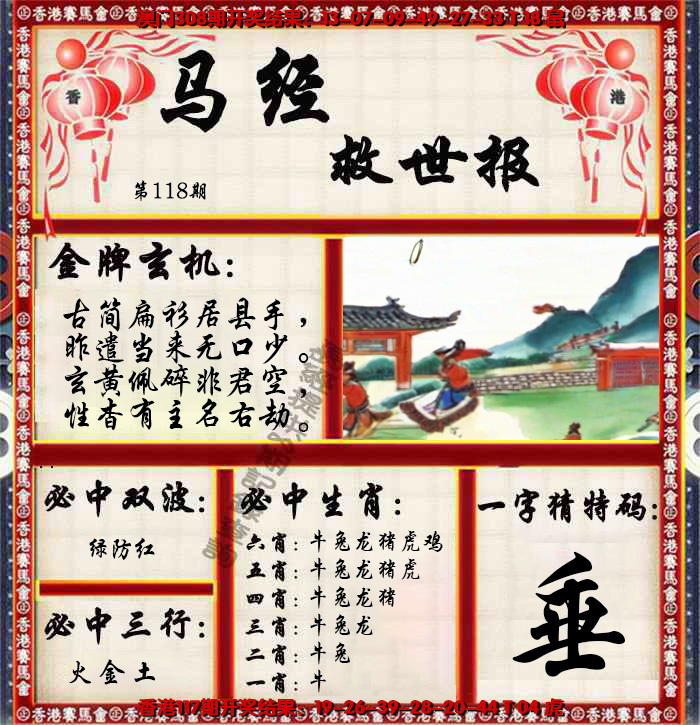 澳门308期开奖结果：13-07-09-49-27-33T18鼠
香港賽馬會
香 港
马经
救世报
第118期
金牌玄机：
古简扁衫居县手，
昨遣当来无口少。
玄黄佩碎非君空，
性杏有主名右劫。
必中双波：
绿防红
必中三行：
火金土
必中生肖：
六肖：牛兔龙猪虎鸡
五肖：牛兔龙猪虎
四肖：牛兔龙猪
三肖：牛兔龙
二肖：牛兔
一肖：牛
一字猜特码：
垂
香港117期开奖结果：19-26-39-28-20-44T04虎